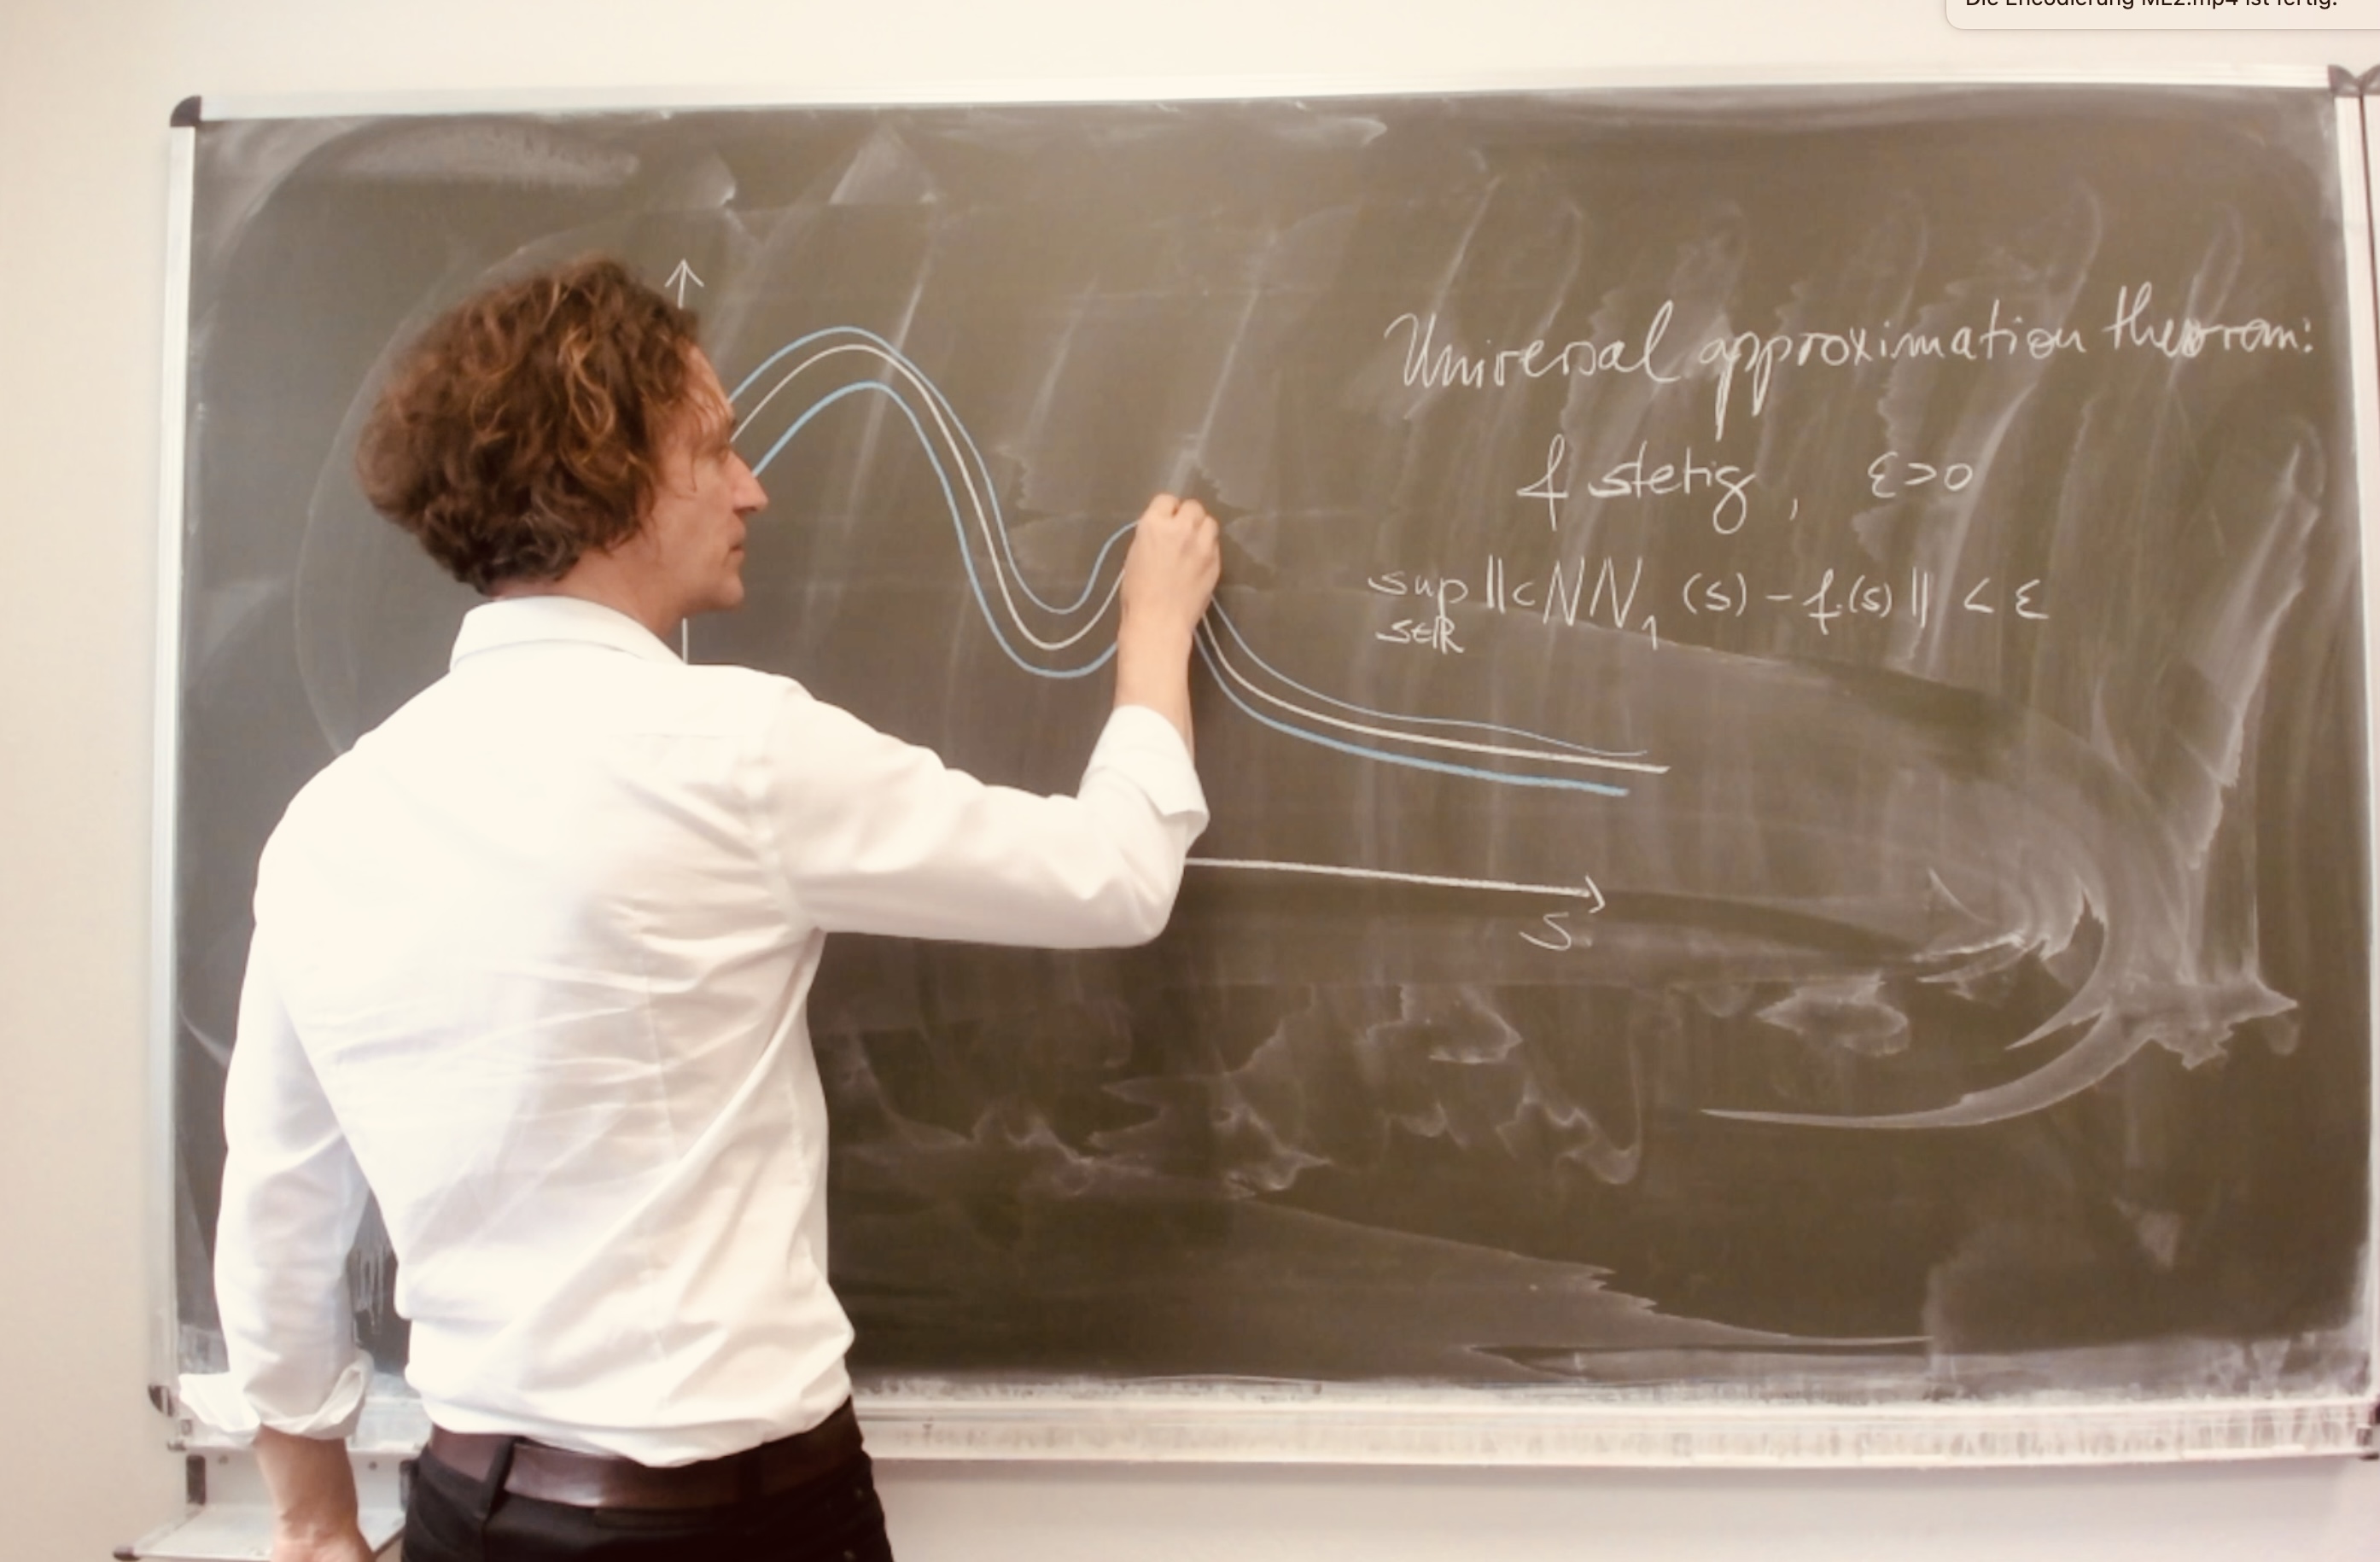 Die Encodierung ML2.mp4 ist fertig.
Universal approximation theorem:
f stetig, ε>0
sup ||cNN₁ (s) - f(s)|| < ε
s∈ℝ
s